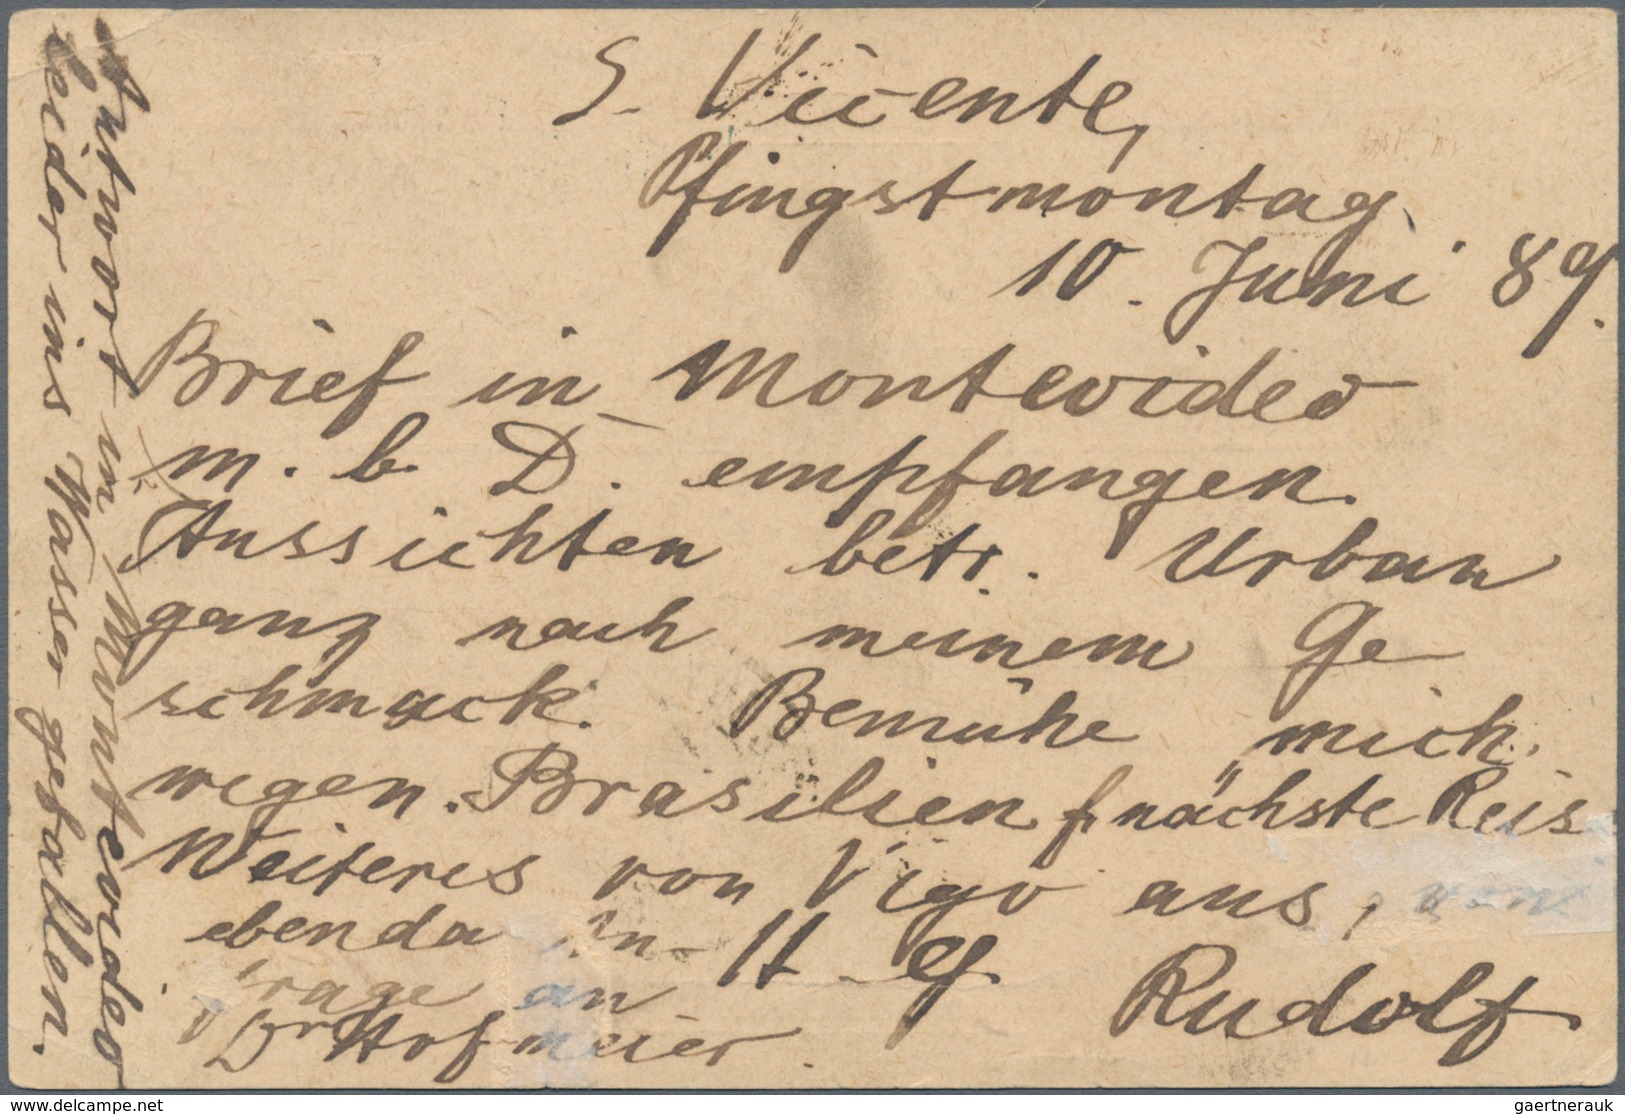 S. Vicente,
Pfingstmontag
10. Juni 89.
Brief in Montevideo
m. b. D. empfangen.
Aussichten betr. Urban
ganz nach meinem Ge
schmack. Bemühe mich
wegen Brasilien f. nächste Reis
Weiteres von Vigo aus, von
ebenda An-
frage an
Dr Hofmeier.
Rudolf
Antwort in Montevideo
leider ins Wasser gefallen.
www.delcampe.net
gaertnerauk